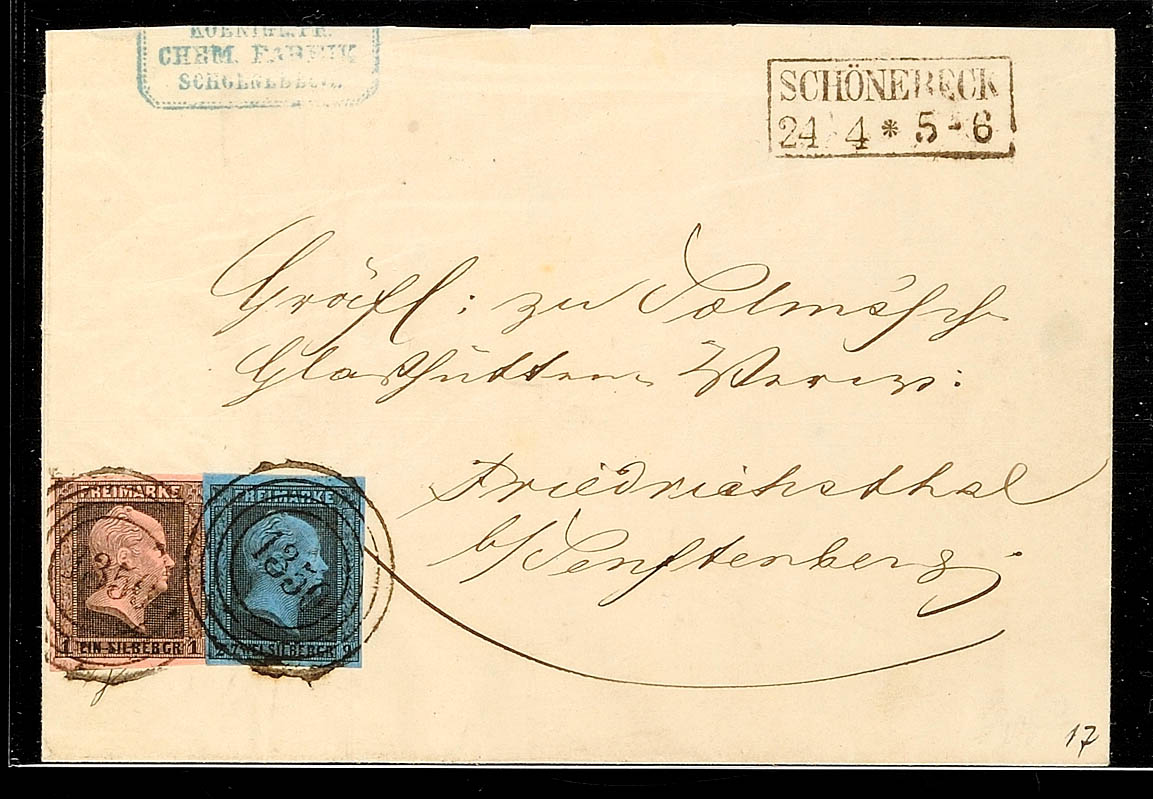 KOENIGL. PR.
CHEM. FABRIK
SCHOENEBECK.
SCHÖNEBECK
24 4 * 5-6
Gräfl: zu Solms'sch
Glashütten Verw:
Friedrichsthal
b/ Senftenberg
FREIMARKE
1 EIN SILBERGR 1
FREIMARKE
2 ZWEI SILBERGR 2
1350
17